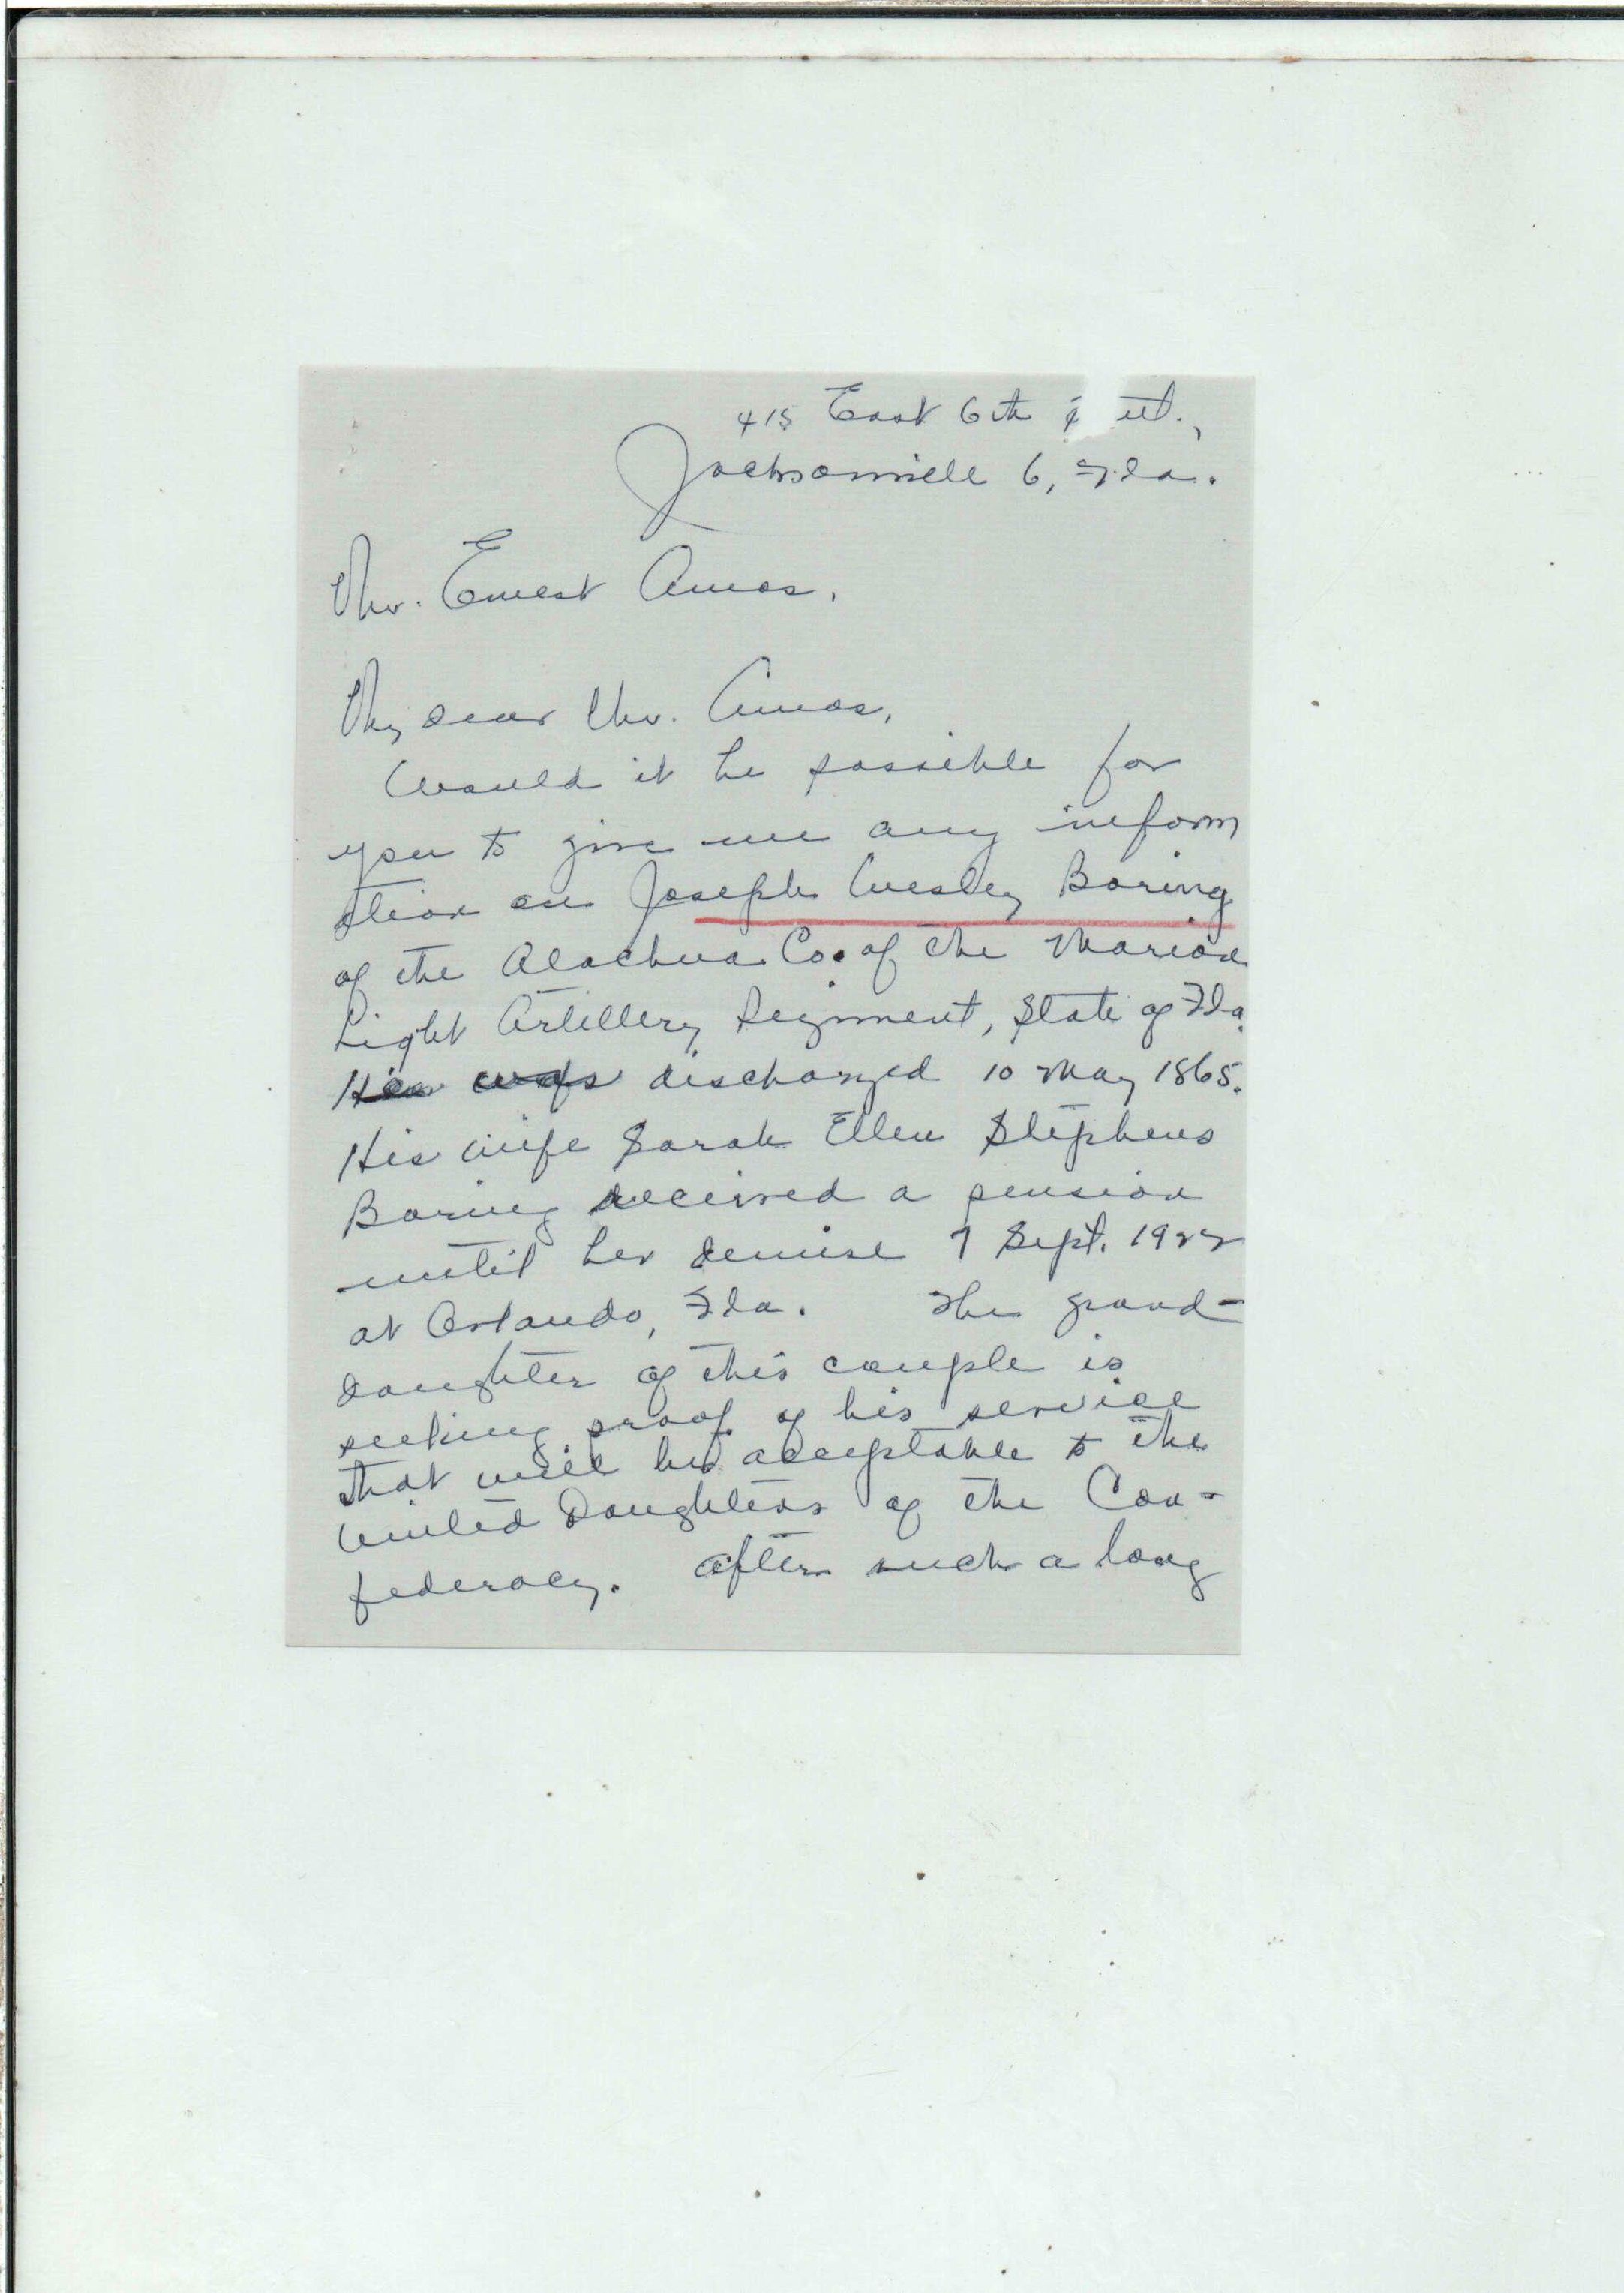 415 East 6th
Jacksonville 6, Fla.
Mr. Ernest Amos,
My dear Mr. Amos,
Would it be possible for
you to give me any inform
ation on Joseph Wesley Boring
of the Alachua Co. of the Marion
Light Artillery Regiment, State of Fla.
He was discharged 10 May 1865.
His wife Sarah Ellen Stephens
Boring received a pension
until her demise 7 Sept. 1922
at Orlando, Fla. The grand-
daughter of this couple is
seeking proof of his service
that will be acceptable to the
United Daughters of the Con-
federacy. After such a long